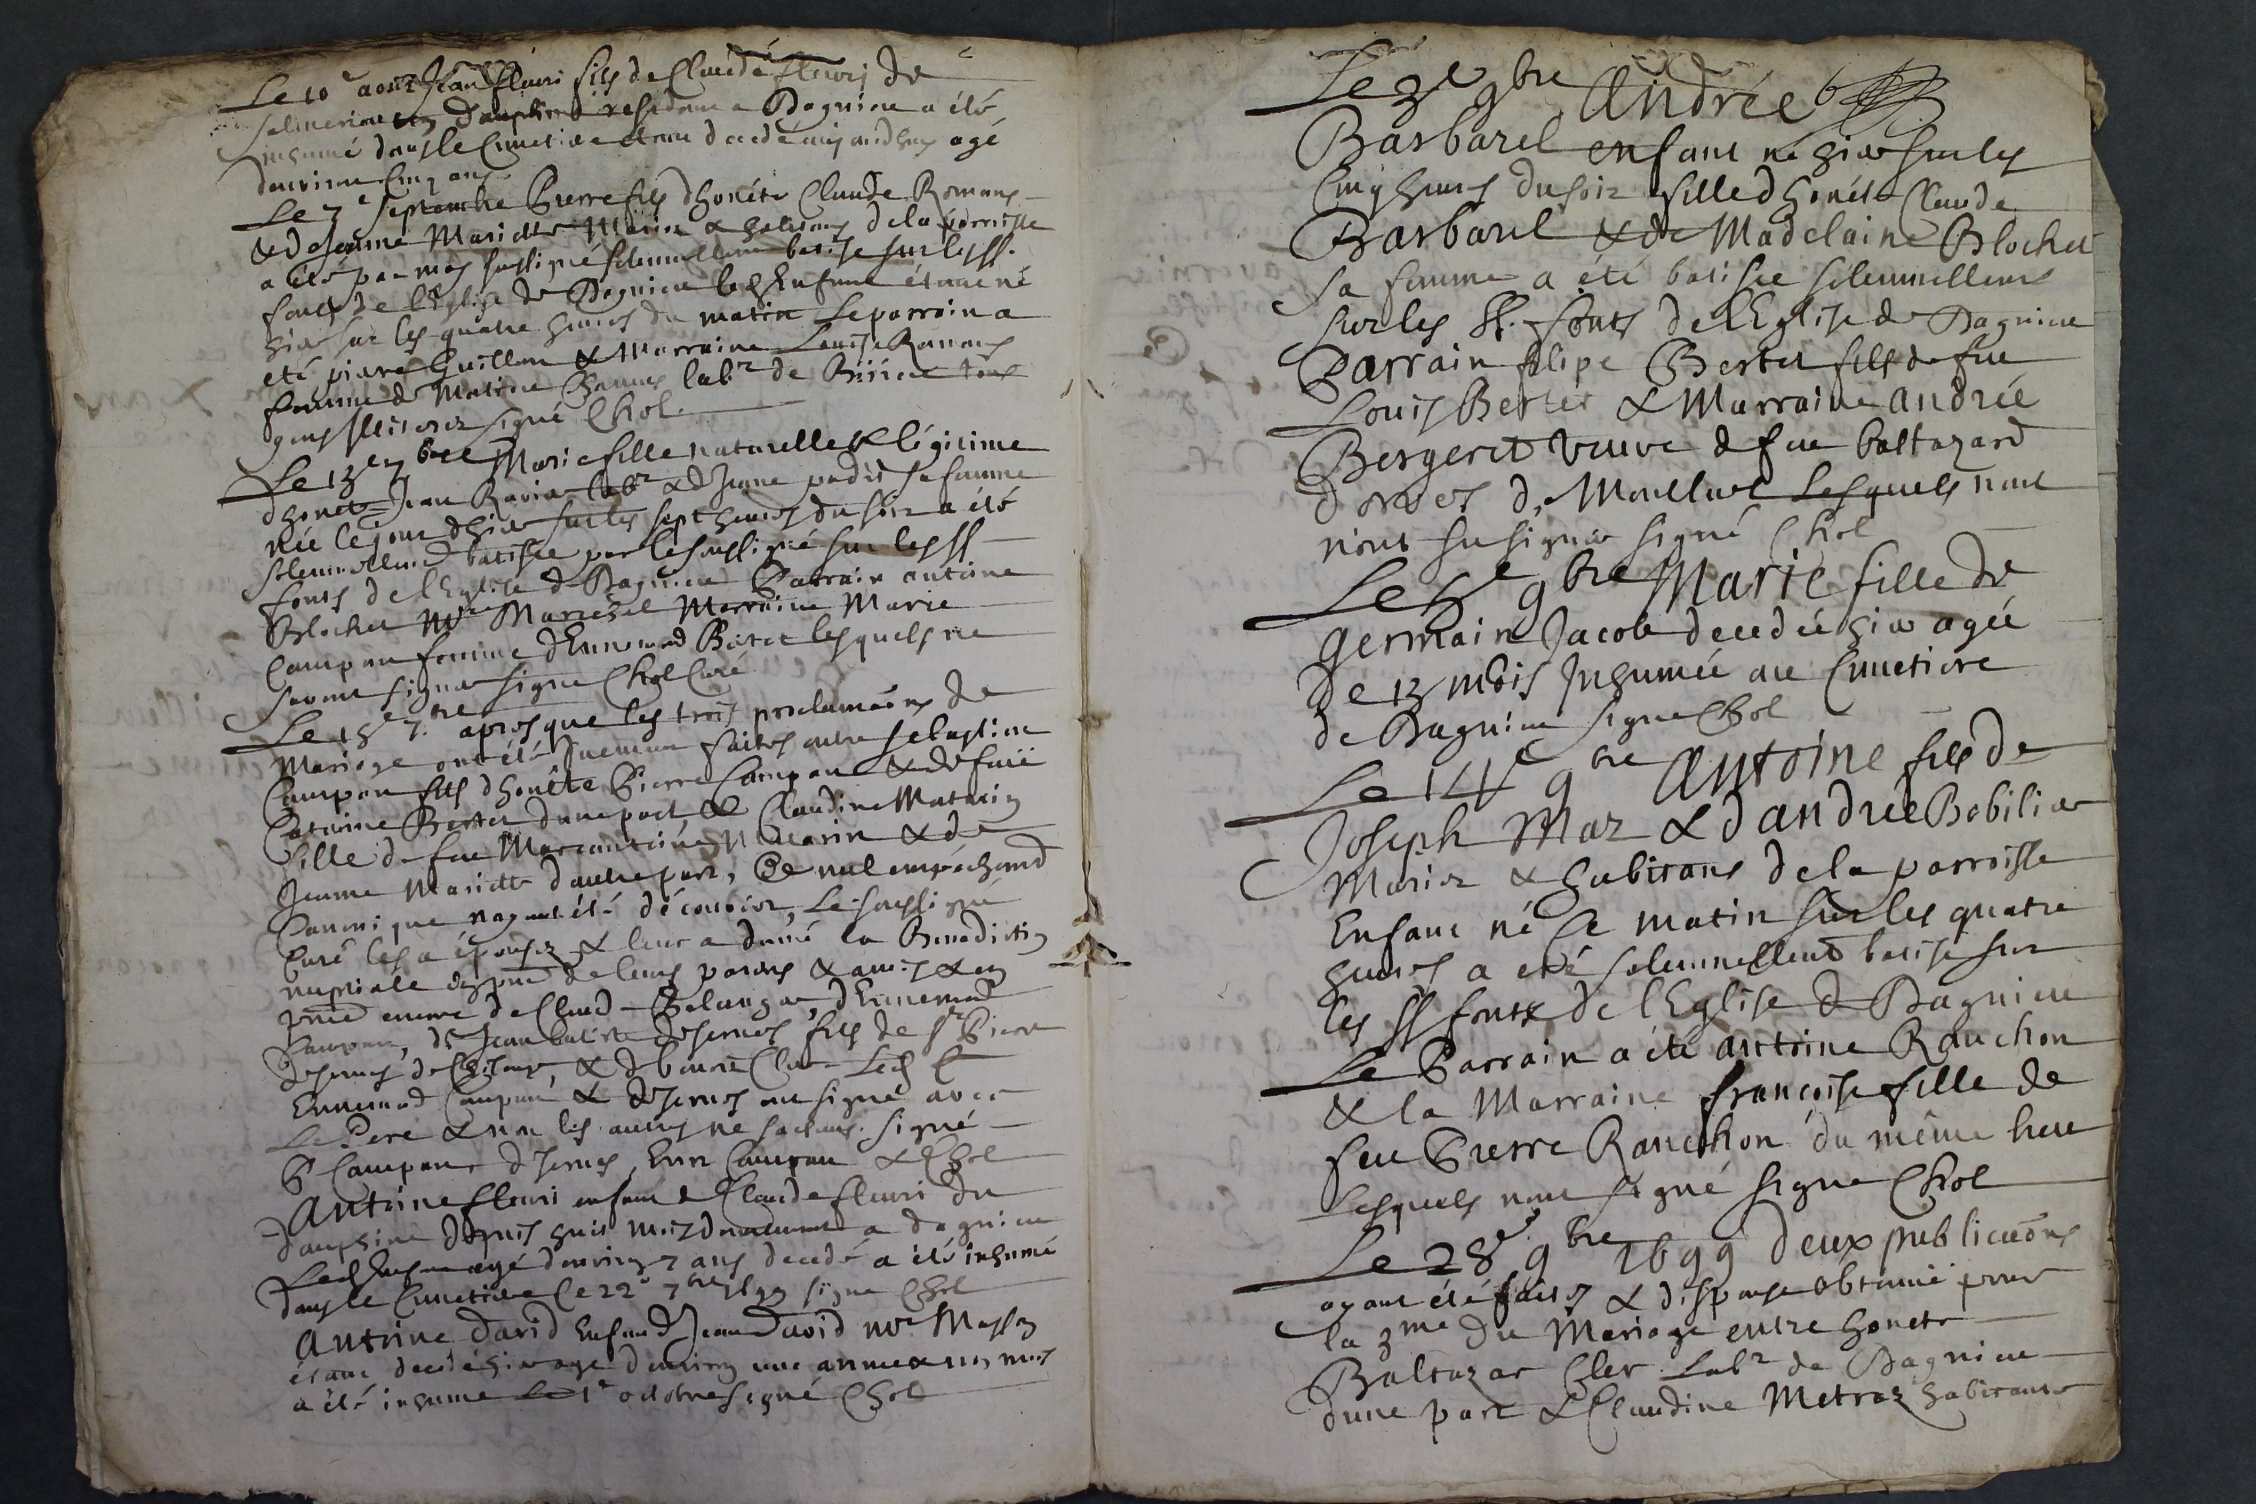 Le 10e aout Jean fleuri fils de Claude fleuri de
en Dauphiné residam a Dagnieu a été
inhumé dans le Cimetiere etant decedé aujourdhuy agé
denviron Cinq ans
Le 7e septembre Pierre fils dhonéte Claude Romans
& de Jeanne Mariette Mariez & habitans de la parroisse
a été par moy soussigné solennellement batisé sur les SS.
fonts de l'Eglise de Dagnieu led Enfant étant né
hier sur les quatre heures du matin Le parrain a
eté piarre Guillon & Marraine Louise Romans
femme de Matieu labr de tous
gens illiterez signé Chol
Le 13e 7bre Marie fille naturelle & légitime
dhonéte Jean Ravier labr & de Jeane padit sa femme
née le jour dhier sur les sept heures du soir a été
solennellemt batisée par le soussigné sur les SS
fonts de l'Eglise de Dagnieu Parrain antoine
Blochet Mre Marechal Marraine Marie
Campan femme dEnnemond Bertet lesquels ne
savent signer signé Chol Curé
Le 18e 7bre apres que les trois proclamaons de
Mariage ont été faites entre sebastien
Campan fils dhonéte Pierre Campan & de fuë
Catarine Bertet dune part & Claudine Matarin
fille de feu Marcantoine Matarin & de
Jeanne Mariette dautre part, & nul empéchemt
Canonique nayant été découvert, Le soussigné
Curé les a épousez & leur a donné la Benediction
nuptiale en pnce de leurs parens & amis & en
pnce encore de Claude Belanger, dEnnemond
Campan, de Jean batiste deserves fils de Sr Pierre
deserves de & de benoit Clerc Led
Ennemond Campan & deserves ont signé avec
Le Pere & non les autres ne sachans. signé
P Campan deserves Enn Campan & Chol
Antoine fleuri enfant de Claude fleuri du
dauphiné depuis huit mois demeurant a dagnieu
Led Enfant agé denviron 7 ans decedé a été inhumé
dans le Cimetiere le 22e 7bre 1699 signé Chol
Antoine david Enfant de Jean David mre Masson
étant decedé hier agé denviron une année & un mois
a été inhumé le 1e octobre signé Chol
Le 3e 9bre Andrée
Barbarel enfant né hier sur les
Cinq heures du soir fille dhonéte Claude
Barbarel & de Madelaine Blochet
sa femme a été batisée solennellemt
sur les SS. fonts de l'Eglise de Dagnieu
Parrain filipe Bertet fils de feu
Louis Bertet & Marraine andrée
Bergeret veuve de feu baltazard
de Monlluel Lesquels nont
signer signé Chol
Le 9bre Marie fille de
germain Jacob decedée hier agée
de 13 mois Inhumée au Cimetiere
de Dagnieu signé Chol
Le 14e 9bre Antoine fils de
Joseph Maz & dandrée Bobilier
Mariez & habitans de la parroisse
Enfant né Ce matin sur les quatre
heures a eté solennellemt batisé sur
les SS fonts de l'Eglise de Dagnieu
Le Parrain a été antoine Ranchon
& la Marraine françoise fille de
feu Pierre Ranchon du même lieu
Lesquels nont signé signé Chol
Le 28e 9bre 1699 deux publicaons
ayant été faites & dispense obtenuë pour
la 3me du Mariage entre honete
Baltazar Cler Labr de Dagnieu
dune part & Claudine Metraz habitante